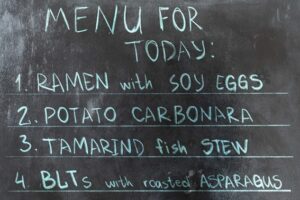 MENU FOR
TODAY:
1. RAMEN with SOY EGGS
2. POTATO CARBONARA
3. TAMARIND fish STEW
4. BLTs with roasted ASPARAGUS